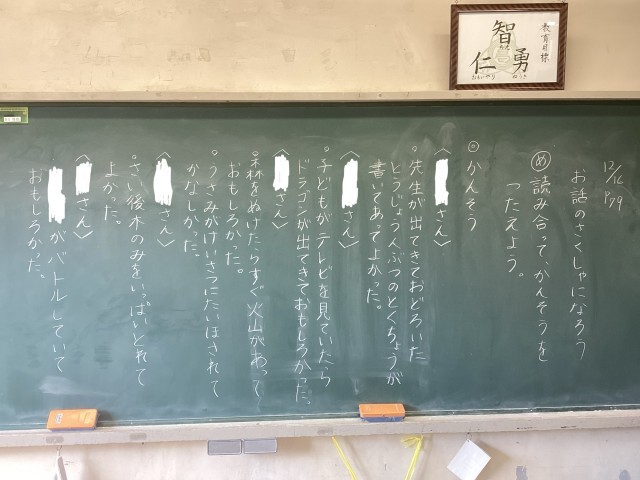 教育目標
智
仁
勇
おもいやり
ゆうき
12/16
P79
お話のさくしゃになろう
め 読み合って、かんそうを
つたえよう。
◎かんそう
〈 さん〉
・先生が出てきておどろいた
とうじょう人ぶつのとくちょうが
書いてあってよかった。
〈 さん〉
・子どもがテレビを見ていたら
ドラゴンが出てきておもしろかった。
〈 さん〉
・森をぬけたらすぐ火山があって
おもしろかった。
・うさみがけいさつにたいほされて
かなしかった。
〈 さん〉
・さい後木のみをいっぱいとれて
よかった。
〈 さん〉
がバトルしていて
おもしろかった。